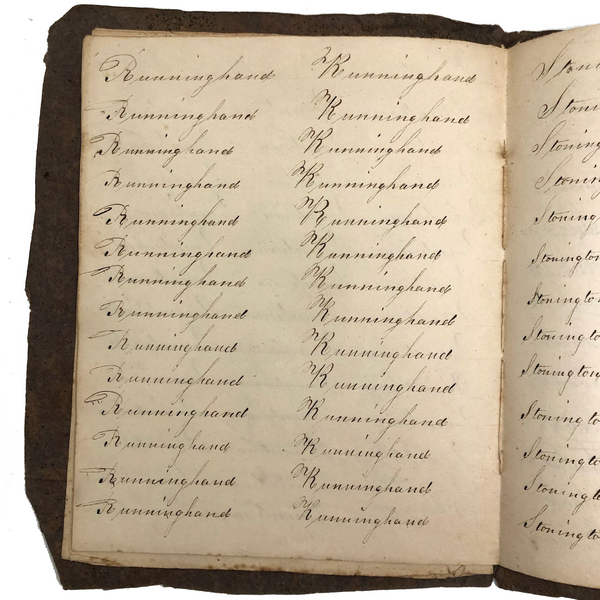 Runninghand Runninghand
Runninghand Runninghand
Runninghand Runninghand
Runninghand Runninghand
Runninghand Runninghand
Runninghand Runninghand
Runninghand Runninghand
Runninghand Runninghand
Runninghand Runninghand
Runninghand Runninghand
Runninghand Runninghand
Runninghand Runninghand
Runninghand Runninghand
Runninghand Runninghand
Stoni
Stoni
Stoning
Stonin
Stoning
Stoningto
Stoningto
Stoningto
Stoningto
Stoningto
Stoningto
Stoningto
Stoningto